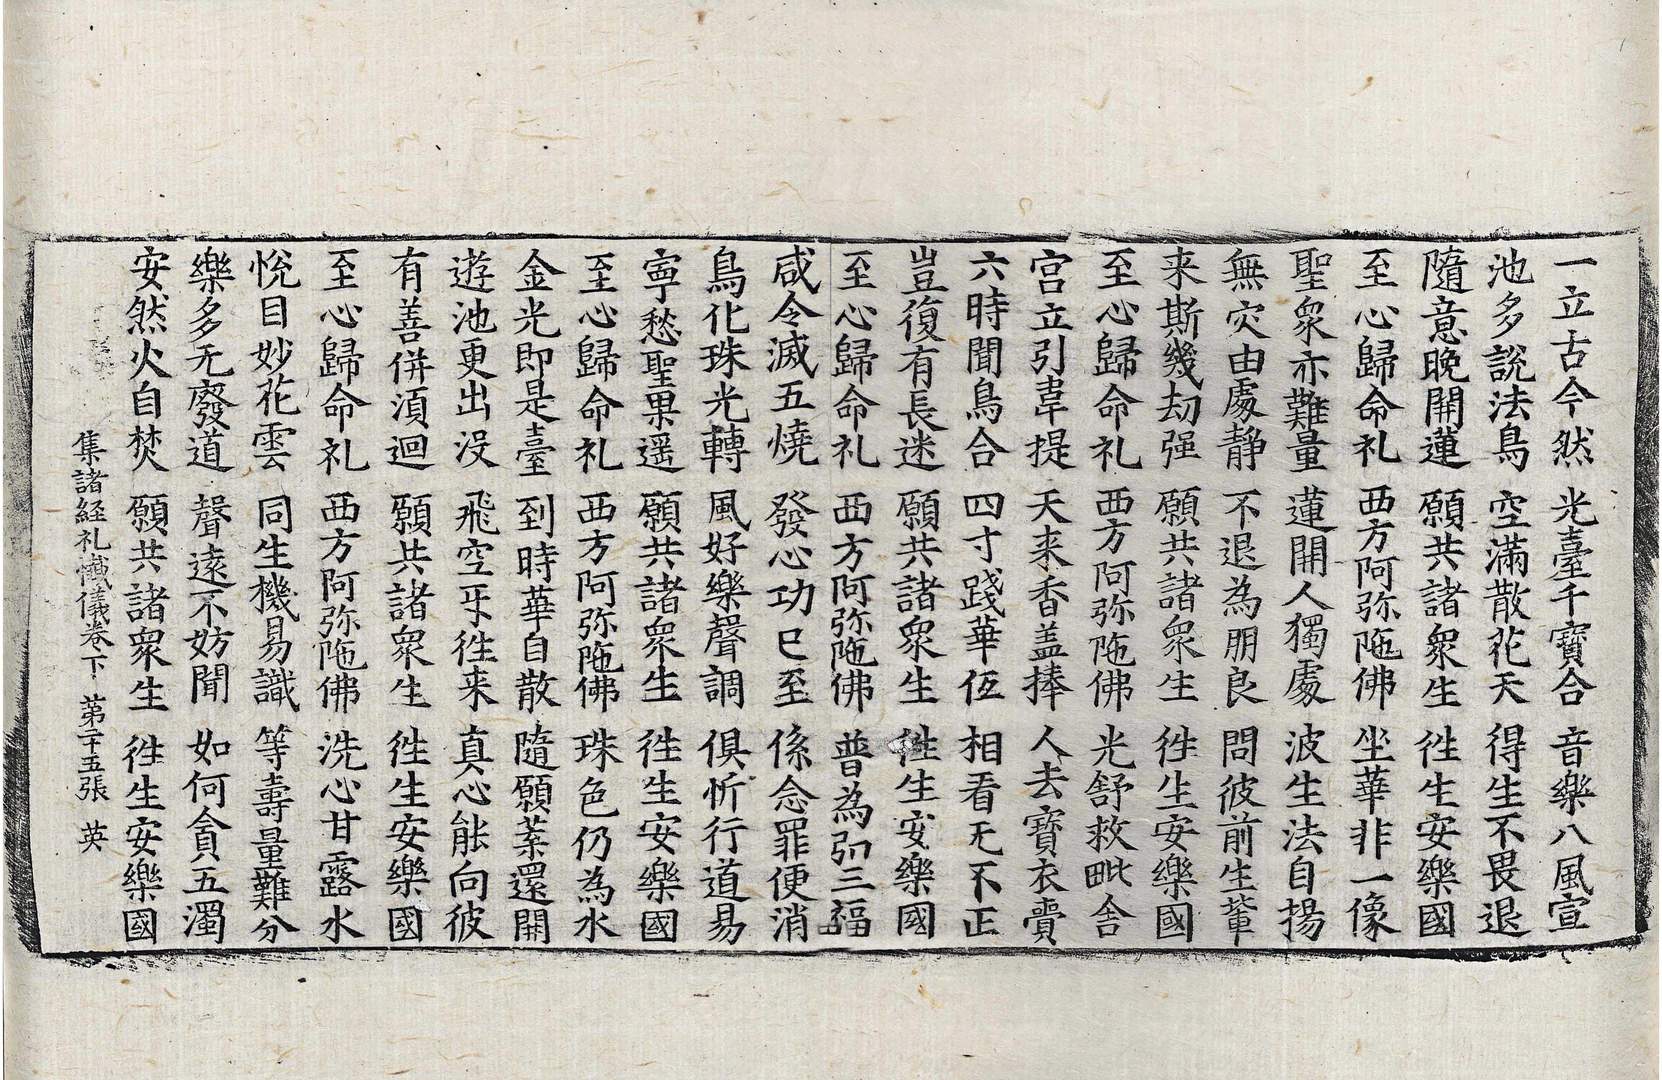 一立古今然 光臺千寶合 音樂八風宣
池多說法鳥 空滿散花天 得生不畏退
隨意晚開蓮 願共諸衆生 徃生安樂國
至心歸命礼 西方阿弥陁佛 坐華非一像
聖衆亦難量 蓮開人獨處 波生法自揚
無灾由處靜 不退為朋良 問彼前生軰
来斯幾劫强 願共諸衆生 徃生安樂國
至心歸命礼 西方阿弥陁佛 光舒救毗舍
宫立引韋提 天来香盖捧 人去寶衣賷
六時聞鳥合 四寸踐華伍 相看无不正
豈復有長迷 願共諸衆生 徃生安樂國
至心歸命礼 西方阿弥陁佛 普為弘三福
咸令滅五燒 發心功已至 係念罪便消
鳥化珠光轉 風好樂聲調 俱忻行道易
寧愁聖果遥 願共諸衆生 徃生安樂國
至心歸命礼 西方阿弥陁佛 珠色仍為水
金光即是臺 到時華自散 隨願葉還開
遊池更出没 飛空𠄔徃来 真心能向彼
有善併湏迴 願共諸衆生 徃生安樂國
至心歸命礼 西方阿弥陁佛 洗心甘露水
悅目妙花雲 同生機易識 等壽量難分
樂多无廢道 聲遠不妨聞 如何貪五濁
安然火自焚 願共諸衆生 徃生安樂國
集諸経礼懺儀卷下 第二十五張 英